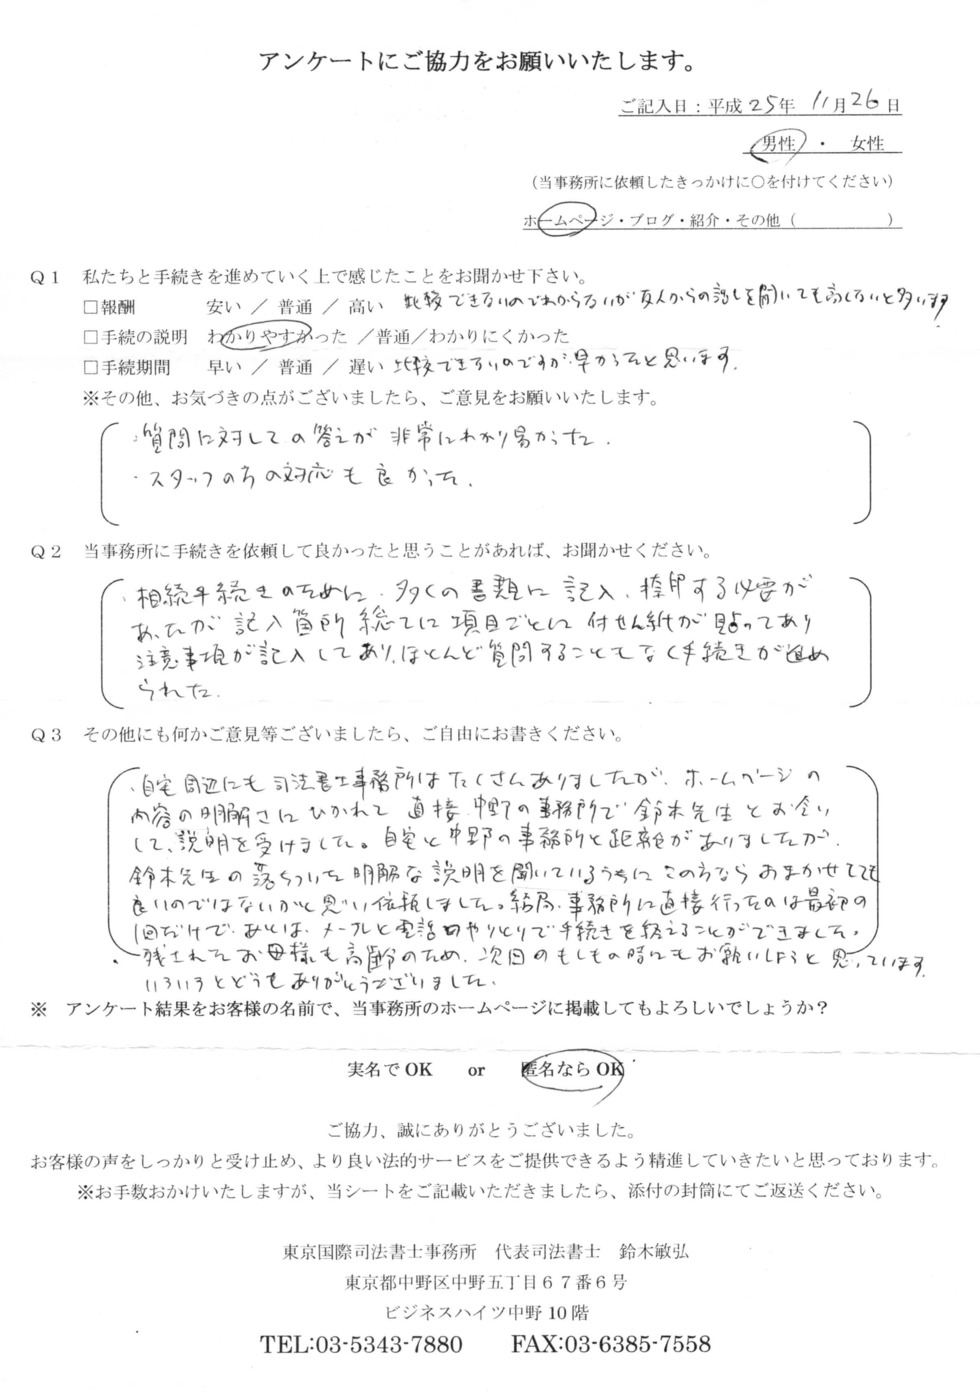 アンケートにご協力をお願いいたします。
ご記入日：平成 25年 11月 26日
男性 ・ 女性
（当事務所に依頼したきっかけに○を付けてください）
ホームページ・ブログ・紹介・その他（　　　　　）
Ｑ１　私たちと手続きを進めていく上で感じたことをお聞かせ下さい。
□報酬　安い ／ 普通 ／ 高い　比較できないのでわからないが友人からの話しを聞いても高くないと思います
□手続の説明　わかりやすかった ／普通／わかりにくかった
□手続期間　早い ／ 普通 ／ 遅い　比較できないのですが、早かったと思います。
※その他、お気づきの点がございましたら、ご意見をお願いいたします。
・質問に対しての答えが非常にわかり易かった。
・スタッフの方の対応も良かった。
Ｑ２　当事務所に手続きを依頼して良かったと思うことがあれば、お聞かせください。
・相続手続きのために、多くの書類に記入、捺印する必要が
あったが記入箇所総てに項目ごとに付せん紙が貼ってあり
注意事項が記入してあり、ほとんど質問することもなく手続きが進め
られた。
Ｑ３　その他にも何かご意見等ございましたら、ご自由にお書きください。
・自宅周辺にも司法書士事務所はたくさんありましたが、ホームページの
内容の明解さにひかれて直接中野の事務所で鈴木先生とお会い
して、説明を受けました。自宅と中野の事務所と距離がありましたが、
鈴木先生の落ちついた明解な説明を聞いているうちにこの方ならおまかせしても
良いのではないかと思い依頼しました。結局、事務所に直接行ったのは最初の
1回だけで、あとは、メールと電話のやりとりで手続きを終えることができました。
・残されたお母様も高齢のため、次回のもしもの時にもお願いしようと思っています。
いろいろとどうもありがとうございました。
※　アンケート結果をお客様の名前で、当事務所のホームページに掲載してもよろしいでしょうか？
実名でOK　or　匿名ならOK
ご協力、誠にありがとうございました。
お客様の声をしっかりと受け止め、より良い法的サービスをご提供できるよう精進していきたいと思っております。
※お手数おかけいたしますが、当シートをご記載いただきましたら、添付の封筒にてご返送ください。
東京国際司法書士事務所　代表司法書士　鈴木敏弘
東京都中野区中野五丁目６７番６号
ビジネスハイツ中野 10 階
TEL:03-5343-7880　FAX:03-6385-7558